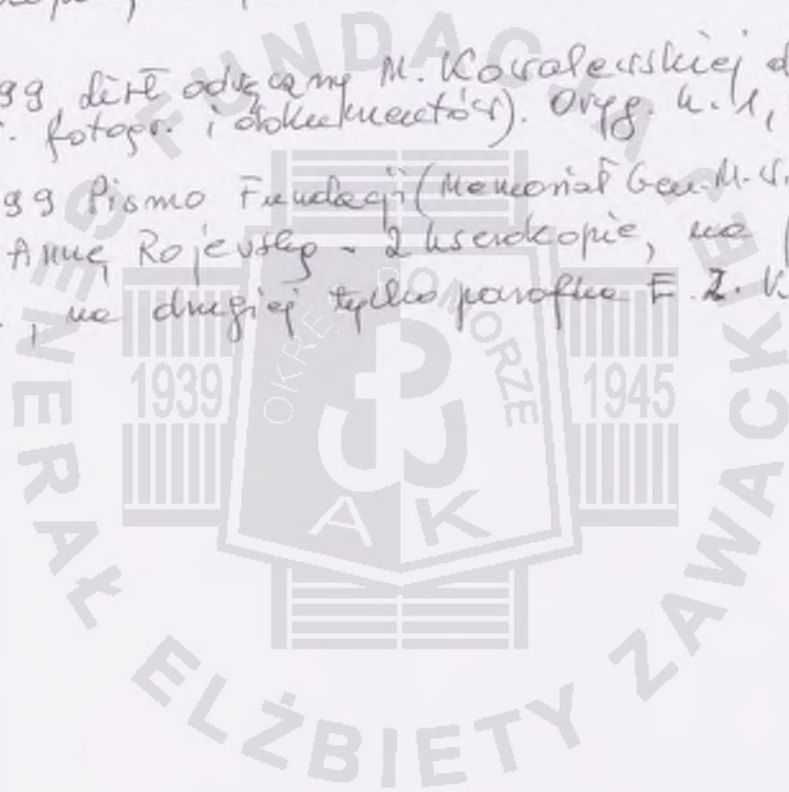 99 list odręczny M. Kowalewskiej d
r. fotogr. i dokumentów). Oryg. k. 1,
99 Pismo Fundacji (Memoriał Gen. M. W.
Annę Rojewską - 2 kserokopie, na
, na drugiej tylko parafka E. Z. K
FUNDACJA
GENERAŁ ELŻBIETY ZAWACKIEJ
OKRĘ POMORZE
1939 1945
A K